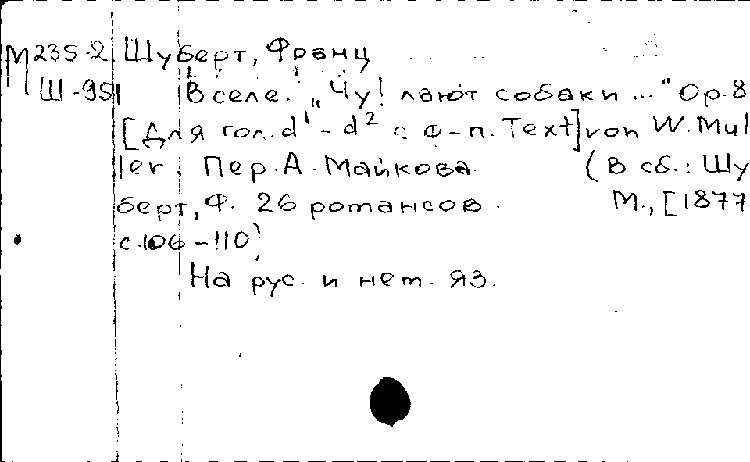 М235-2 Шуберт, Франц
Ш-951 В селе. „Чу! лают собаки..." Op.8
[Для гол. d¹-d² с ф-п. Text] von W. Mul
ler. Пер. А. Майкова. (В сб.: Шу
берт, Ф. 26 романсов. М., [1877
с.106-110)
На рус. и нем. яз.